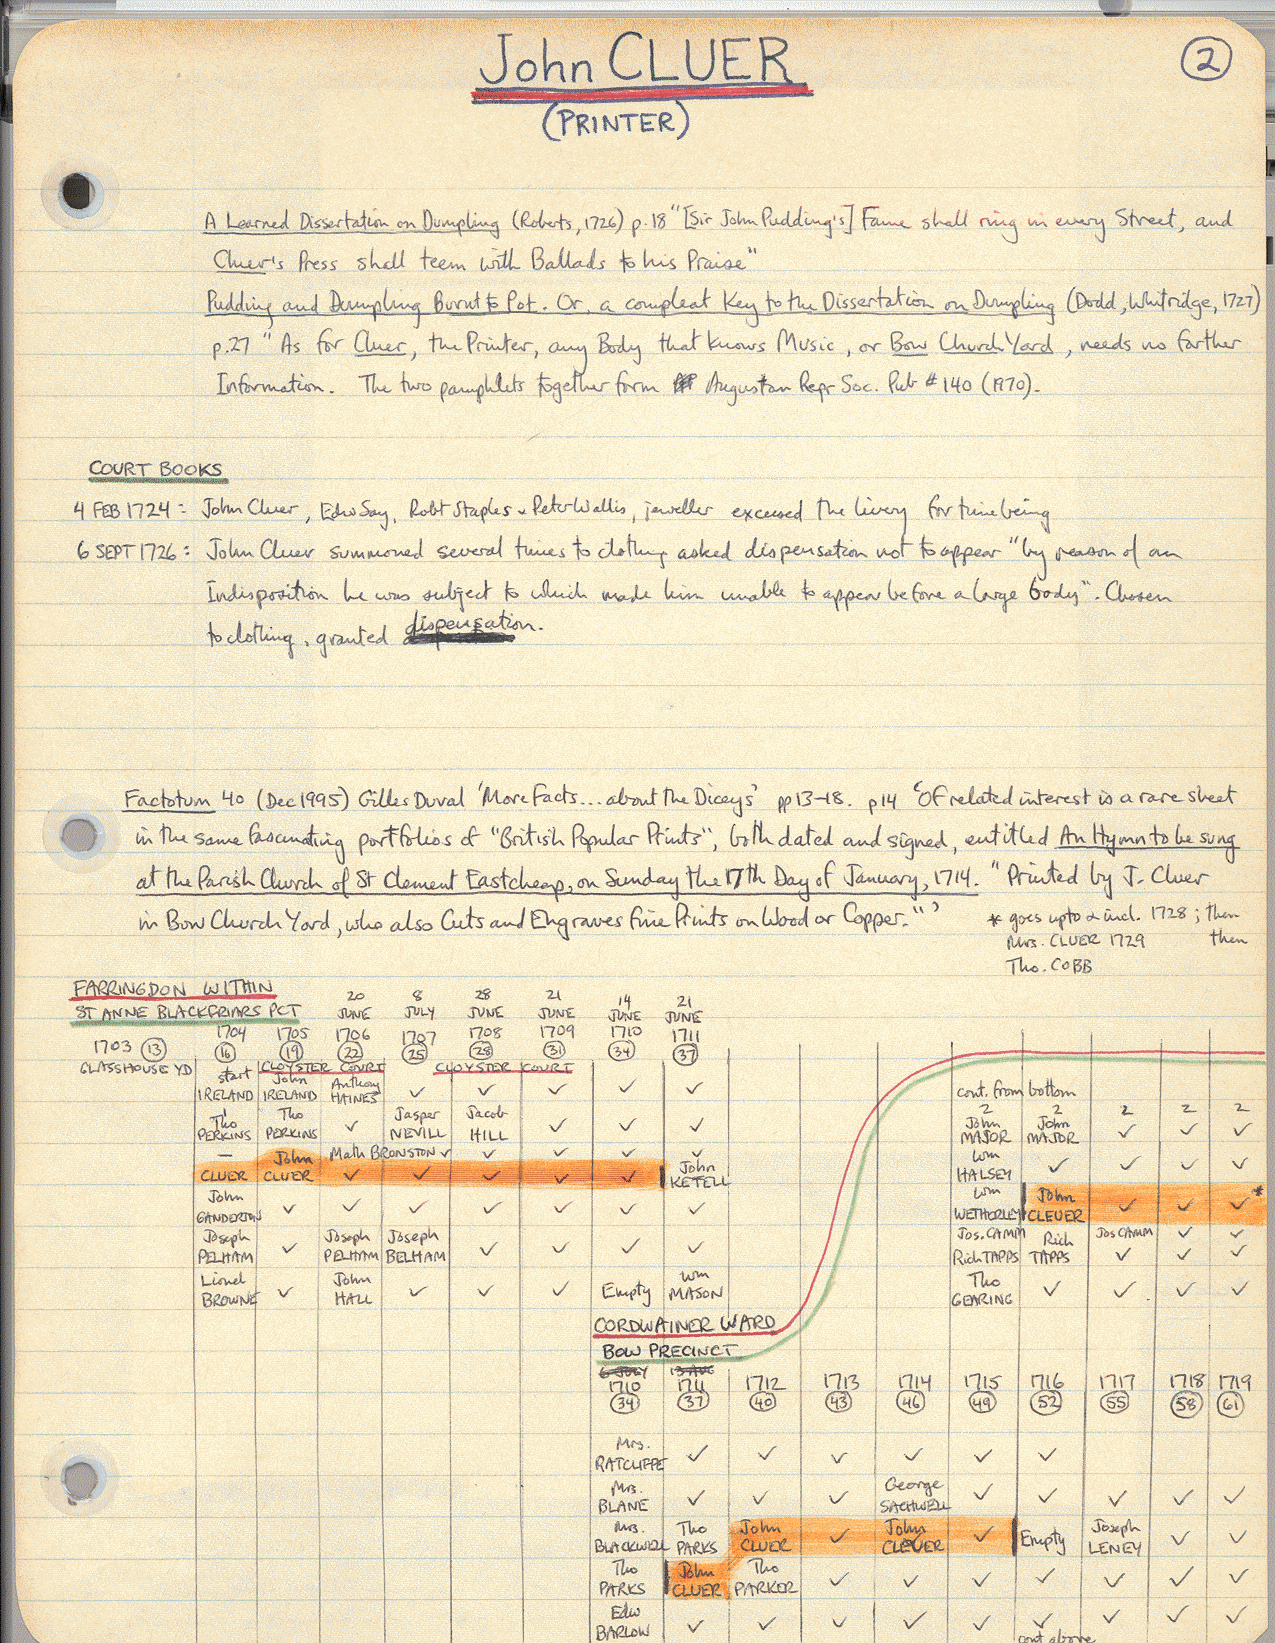 John CLUER
2
(PRINTER)
A Learned Dissertation on Dumpling (Roberts, 1726) p.18 "[Sir John Pudding's] Fame shall ring in every Street, and
Cluer's Press shall teem with Ballads to his Praise"
Pudding and Dumpling Burnt to Pot. Or, a compleat Key to the Dissertation on Dumpling (Dodd, Whitridge, 1727)
p.27 " As for Cluer, the Printer, any Body that knows Music, or Bow Church Yard, needs no farther
Information. The two pamphlets together form Augustan Repr Soc. Pub # 140 (1970).
COURT BOOKS
4 FEB 1724: John Cluer, Edw Say, Robt Staples & Peter Wallis, jeweller excused the livery for time being
6 SEPT 1726: John Cluer summoned several times to clothing asked dispensation not to appear "by reason of an
Indisposition he was subject to which made him unable to appear before a large body". Chosen
to clothing, granted dispensation.
Factotum 40 (Dec 1995) Gilles Duval 'More Facts... about the Diceys' pp 13-18. p14 'Of related interest is a rare sheet
in the same fascinating portfolios of "British Popular Prints", both dated and signed, entitled An Hymn to be sung
at the Parish Church of St Clement Eastcheap, on Sunday the 17th Day of January, 1714. "Printed by J. Cluer
in Bow Church Yard, who also Cuts and Engraves fine Prints on Wood or Copper."'
* goes up to & incl. 1728; then
Mrs. CLUER 1729 then
Tho. COBB
FARRINGDON WITHIN
ST ANNE BLACKFRIARS PCT
20 8 28 21 14 21
JUNE JULY JUNE JUNE JUNE JUNE
1703 (13) 1704 1705 1706 1707 1708 1709 1710 1711
(16) (19) (22) (25) (28) (31) (34) (37)
GLASSHOUSE YD CLOYSTER COURT CLOYSTER COURT
start IRELAND John IRELAND Anthony HAINES ✓ ✓ ✓ ✓ ✓
Tho PERKINS Tho PERKINS ✓ Jasper NEVILL Jacob HILL ✓ ✓ ✓
— Math BRONSTON ✓ ✓ ✓ ✓ ✓
CLUER John CLUER ✓ ✓ ✓ ✓ ✓ John KETELL
John GANDERTON ✓ ✓ ✓ ✓ ✓ ✓ ✓
Joseph PELHAM ✓ Joseph PELHAM Joseph BELHAM ✓ ✓ ✓ ✓
Lionel BROWNE ✓ John HALL ✓ ✓ ✓ Empty Wm MASON
cont. from bottom
2 2 2 2 2
John MAJOR John MAJOR ✓ ✓ ✓
Wm HALSEY ✓ ✓ ✓ ✓
Wm WETHERLEY John CLEUER ✓ ✓ ✓ *
Jos. CAMM Jos CAMM ✓ ✓
Rich TAPPS Rich TAPPS ✓ ✓ ✓
Tho GEARING ✓ ✓ ✓ ✓
CORDWAINER WARD
BOW PRECINCT
6 JULY 13 AUG
1710 1711 1712 1713 1714 1715 1716 1717 1718 1719
(34) (37) (40) (43) (46) (49) (52) (55) (58) (61)
Mrs. RATCLIFFE ✓ ✓ ✓ ✓ ✓ ✓
Mrs. BLANE ✓ ✓ ✓ George SACHWELL ✓ ✓ ✓ ✓ ✓
Mrs. BLACKWELL Tho PARKS John CLUER ✓ John CLEUER ✓ Empty Joseph LENEY ✓ ✓
Tho PARKS John CLUER Tho PARKER ✓ ✓ ✓ ✓ ✓ ✓ ✓
Edw BARLOW ✓ ✓ ✓ ✓ ✓ ✓ ✓ ✓ ✓
cont above